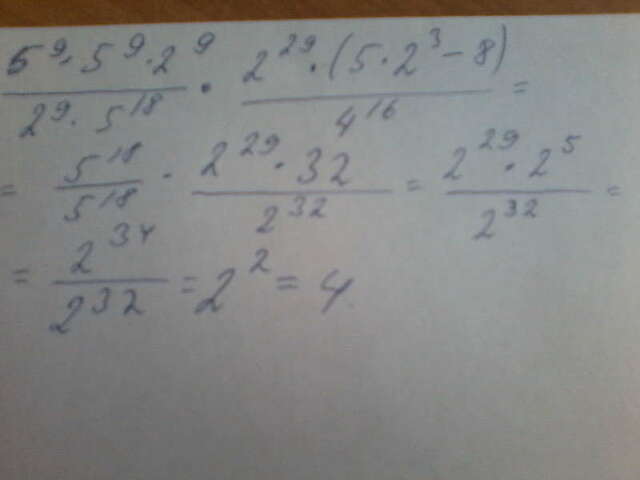 5⁹·5⁹·2⁹/2⁹·5¹⁸ · 2²⁹·(5·2³-8)/4¹⁶ =
= 5¹⁸/5¹⁸ · 2²⁹·32/2³² = 2²⁹·2⁵/2³² =
= 2³⁴/2³² = 2² = 4